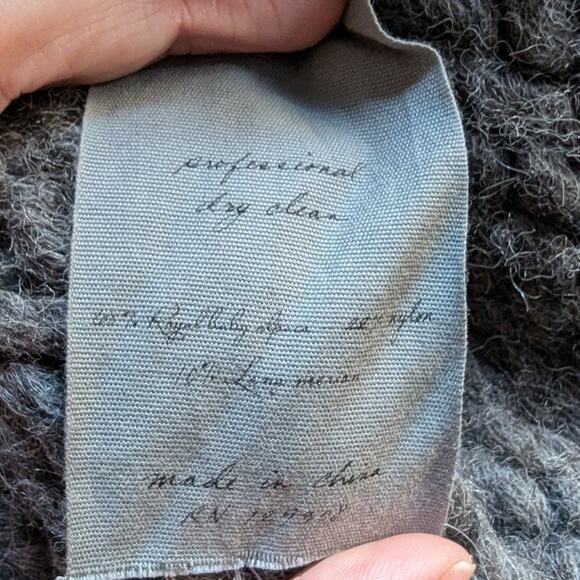 professional
dry clean
Royal baby alpaca nylon
10% Lana merino
made in china
RN